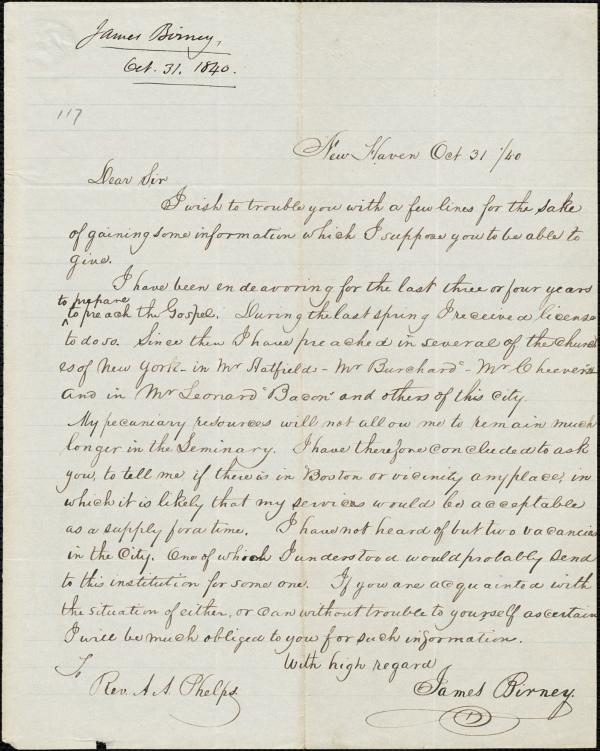 James Birney,
Oct. 31. 1840.
117
New Haven Oct 31 /40
Dear Sir
I wish to trouble you with a few lines for the sake
of gaining some information which I suppose you to be able to
give.
I have been endeavoring for the last three or four years
to prepare
to preach the Gospel. During the last spring I received license
to do so. Since then I have preached in several of the church
es of New York - in Mr Hatfields - Mr Burchard" - Mr Cheevers
and in Mr Leonard "Bacon" and others of this city.
My pecuniary resources will not allow me to remain much
longer in the Seminary. I have therefore concluded to ask
you, to tell me if there is in Boston or vicinity any place, in
which it is likely that my services would be acceptable
as a supply for a time. I have not heard of but two vacancies
in the City. One of which I understood would probably send
to this institution for some one. If you are acquainted with
the situation of either, or can without trouble to yourself ascertain
I will be much obliged to you for such information.
With high regard
To
Rev. A. A. Phelps
James Birney.